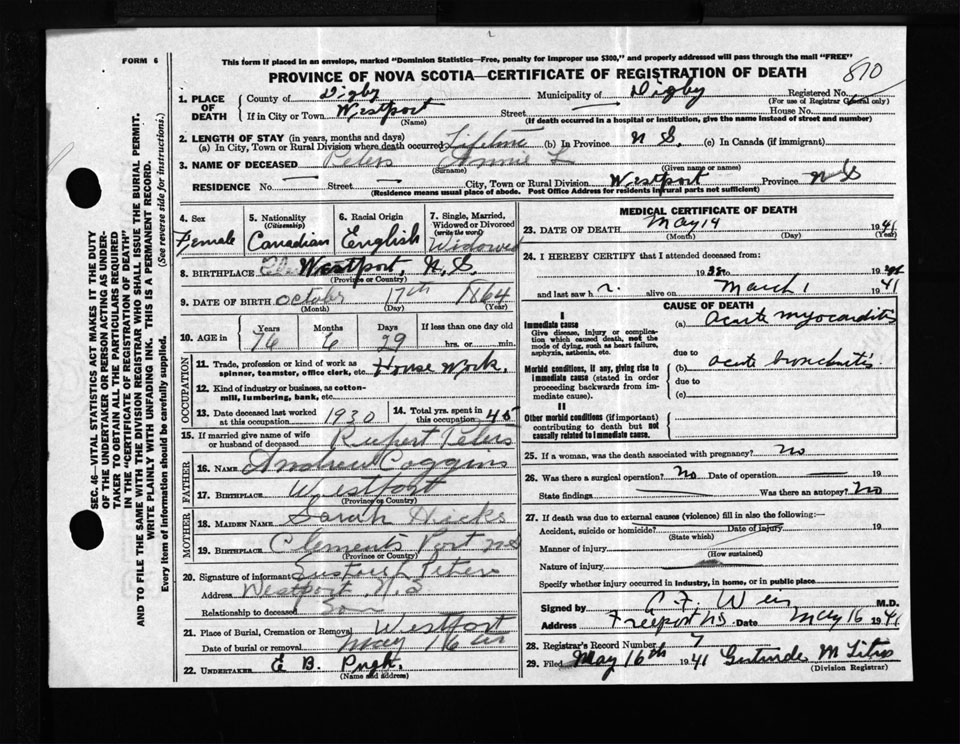 FORM 6
This form if placed in an envelope, marked "Dominion Statistics—Free, penalty for improper use $300," and properly addressed will pass through the mail "FREE"
PROVINCE OF NOVA SCOTIA—CERTIFICATE OF REGISTRATION OF DEATH
810
1. PLACE OF DEATH
County of Digby Municipality of Digby Registered No.
(For use of Registrar General only)
If in City or Town Westport Street House No.
(Name) (If death occurred in a hospital or institution, give the name instead of street and number)
2. LENGTH OF STAY (in years, months and days)
(a) In City, Town or Rural Division where death occurred Lifetime (b) In Province N S. (c) In Canada (if immigrant)
3. NAME OF DECEASED Peters Annie L
(Surname) (Given name or names)
RESIDENCE No. Street City, Town or Rural Division Westport Province N S
(Residence means usual place of abode. Post Office Address for residents in rural parts not sufficient)
4. Sex Female
5. Nationality (Citizenship) Canadian
6. Racial Origin English
7. Single, Married, Widowed or Divorced (write the word) Widowed
8. BIRTHPLACE Westport, N.S.
(Province or Country)
9. DATE OF BIRTH October 17th 1864
(Month) (Day) (Year)
10. AGE in Years 76 Months 6 Days 29 If less than one day old hrs. or min.
OCCUPATION
11. Trade, profession or kind of work as spinner, teamster, office clerk, etc. House Work.
12. Kind of industry or business, as cotton-mill, lumbering, bank, etc.
13. Date deceased last worked at this occupation 1930
14. Total yrs. spent in this occupation 45
15. If married give name of wife or husband of deceased Rupert Peters
FATHER
16. NAME Andrew Coggins
17. BIRTHPLACE Westport
(Province or Country)
MOTHER
18. MAIDEN NAME Sarah Hicks
19. BIRTHPLACE Clements Port NS
(Province or Country)
20. Signature of informant Peters
Address Westport, N.S
Relationship to deceased Son
21. Place of Burial, Cremation or Removal Westport
Date of burial or removal May 16
22. UNDERTAKER E B. Pugh.
(Name and address)
MEDICAL CERTIFICATE OF DEATH
23. DATE OF DEATH May 14 1941
(Month) (Day) (Year)
24. I HEREBY CERTIFY that I attended deceased from:
19 to 19
and last saw h r. alive on March 1 1941
CAUSE OF DEATH
I
Immediate cause
Give disease, injury or complication which caused death, not the mode of dying, such as heart failure, asphyxia, asthenia, etc.
(a) acute myocarditis
due to
Morbid conditions, if any, giving rise to immediate cause (stated in order proceeding backwards from immediate cause).
(b) acute bronchitis
due to
(c)
II
Other morbid conditions (if important) contributing to death but not causally related to immediate cause.
25. If a woman, was the death associated with pregnancy? no
26. Was there a surgical operation? No Date of operation 19
State findings Was there an autopsy? No
27. If death was due to external causes (violence) fill in also the following:—
Accident, suicide or homicide? Date of injury 19
(State which)
Manner of injury
(How sustained)
Nature of injury
Specify whether injury occurred in industry, in home, or in public place
Signed by M.D.
Address Freeport NS Date May 16 1941
28. Registrar's Record Number 7
29. Filed May 16th 1941 M Titus
(Division Registrar)
SEC. 46—VITAL STATISTICS ACT MAKES IT THE DUTY
OF THE UNDERTAKER OR PERSON ACTING AS UNDER-
TAKER TO OBTAIN ALL THE PARTICULARS REQUIRED
IN THE "CERTIFICATE OF REGISTRATION OF DEATH"
AND TO FILE THE SAME WITH THE DIVISION REGISTRAR WHO SHALL ISSUE THE BURIAL PERMIT.
WRITE PLAINLY WITH UNFADING INK. THIS IS A PERMANENT RECORD.
Every item of information should be carefully supplied. (See reverse side for instructions.)